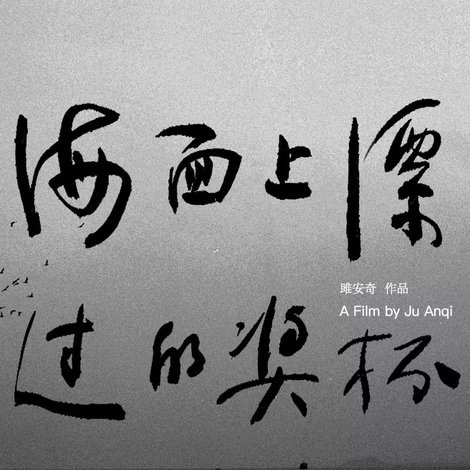 海面上漂
过的奖杯
雎安奇 作品
A Film by Ju Anqi